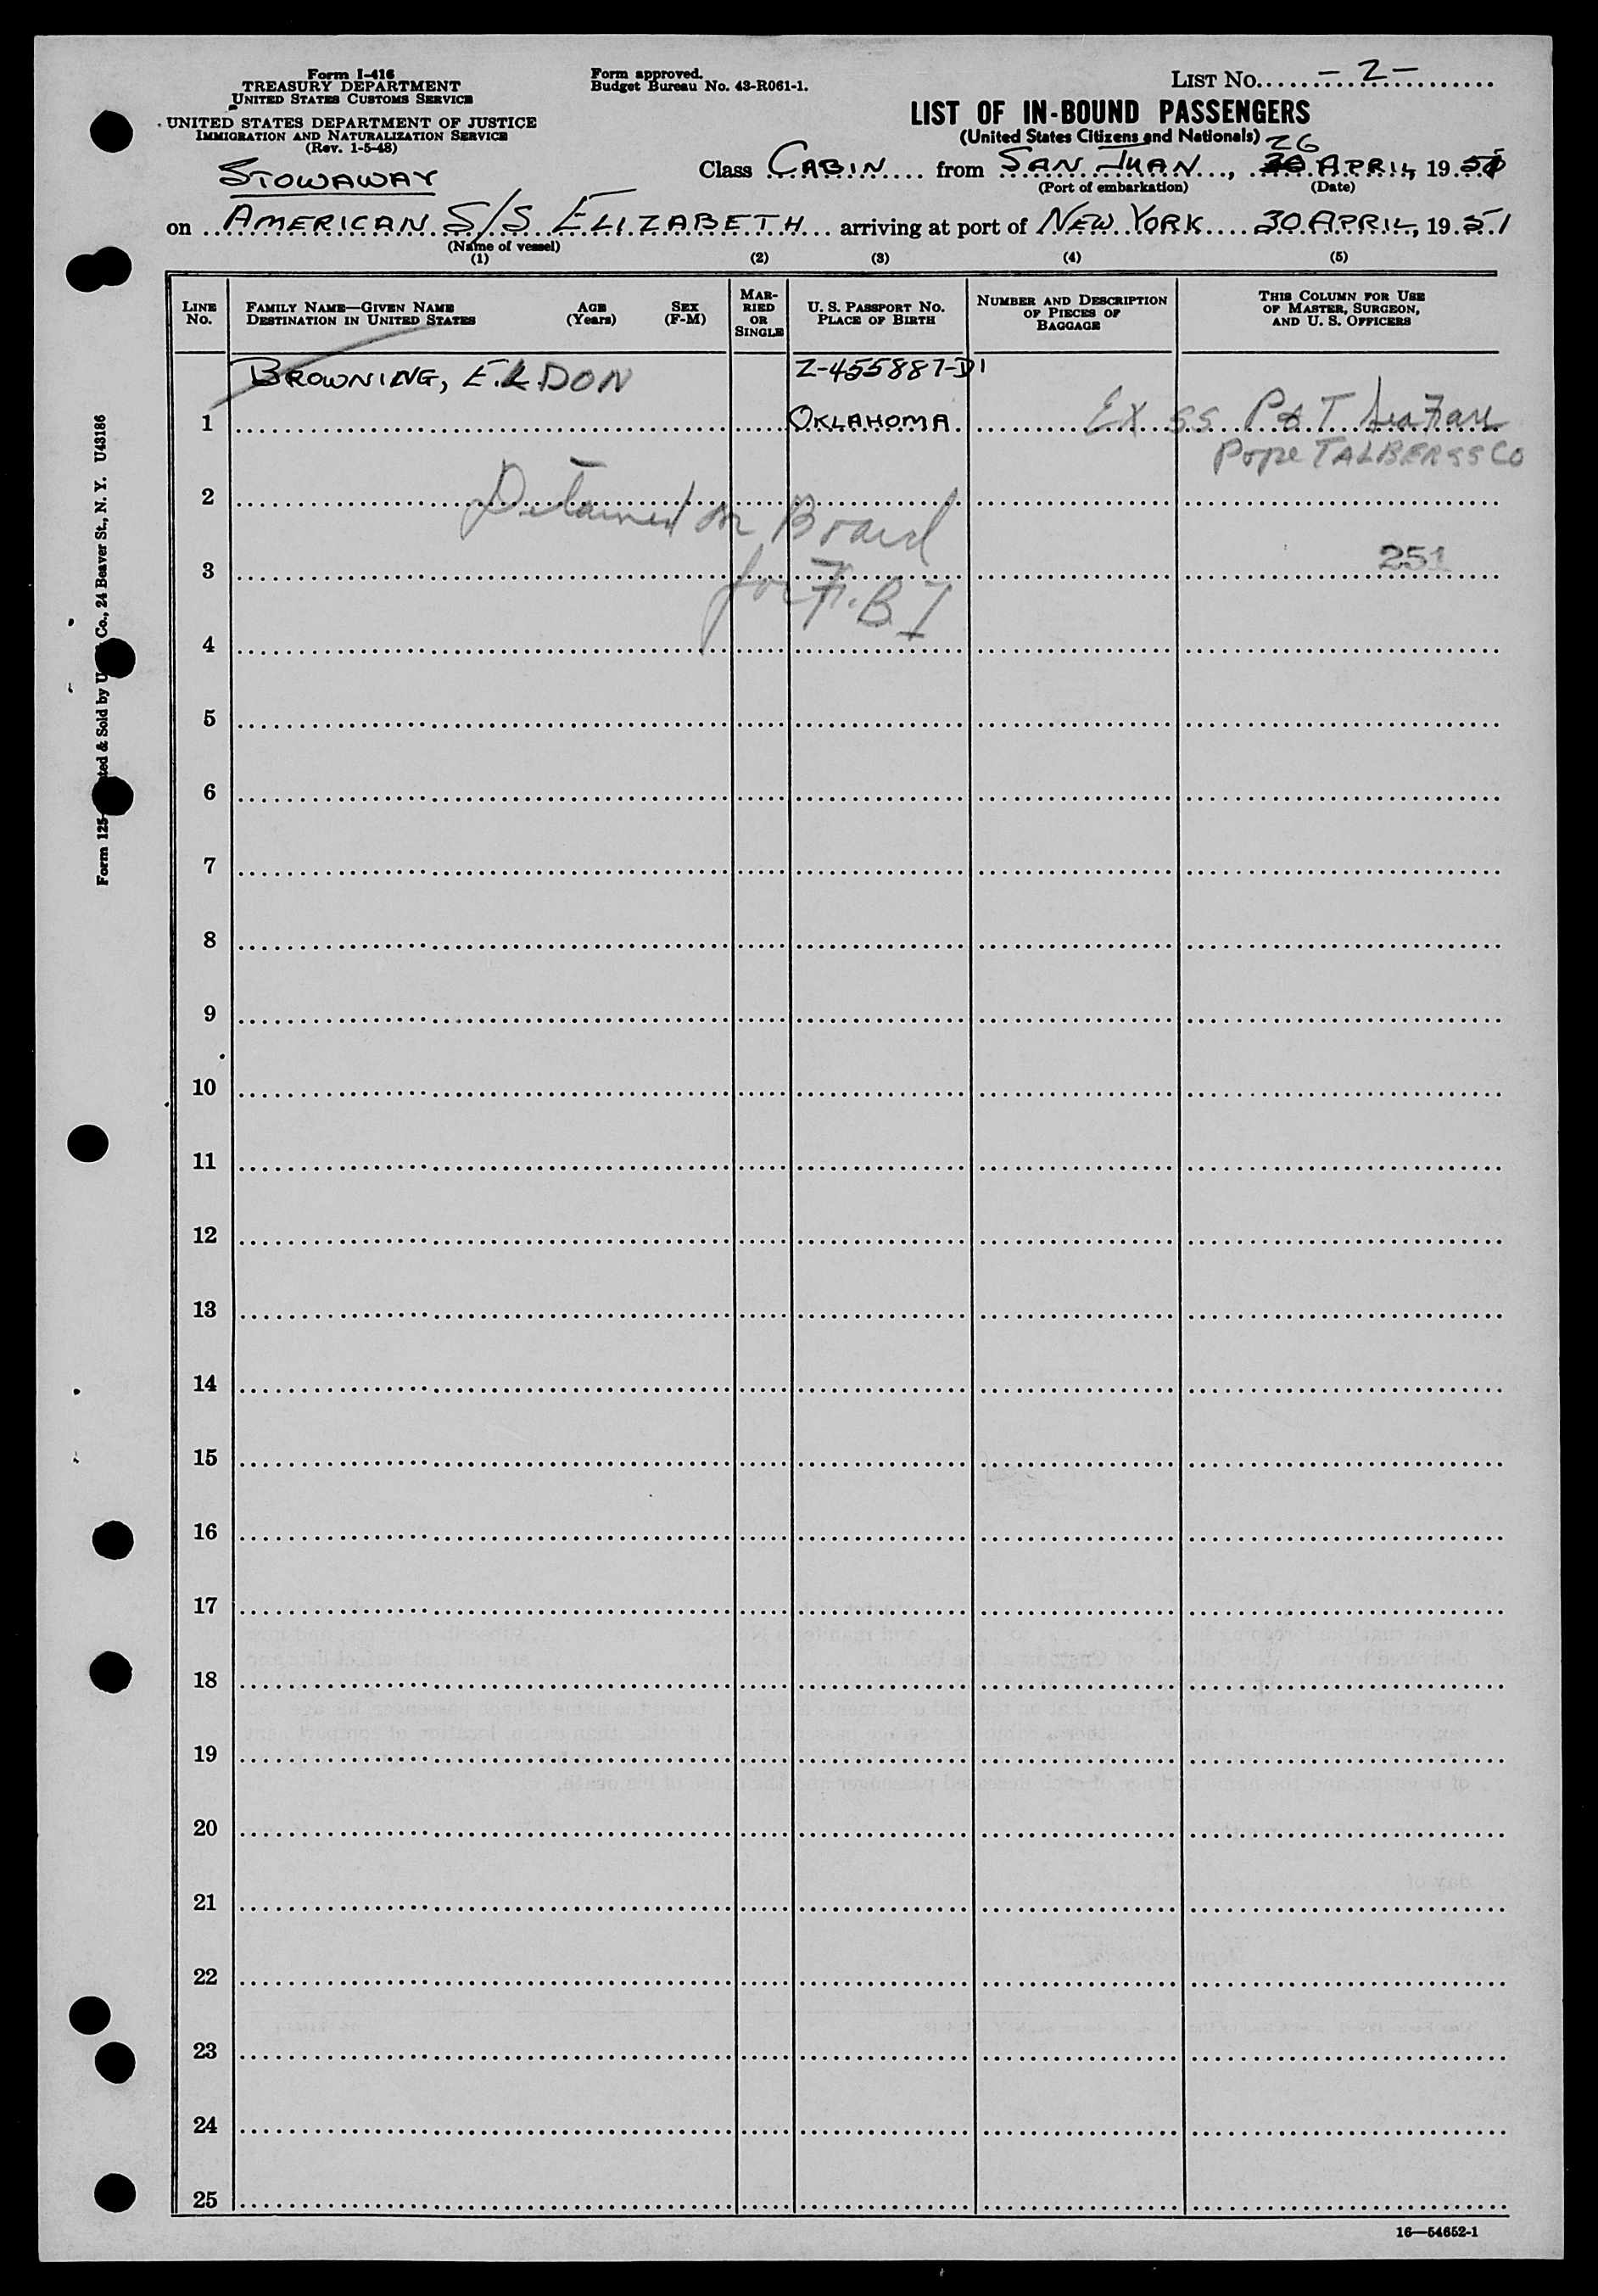 Form I-416
TREASURY DEPARTMENT
UNITED STATES CUSTOMS SERVICE
UNITED STATES DEPARTMENT OF JUSTICE
IMMIGRATION AND NATURALIZATION SERVICE
(Rev. 1-5-48)
Form approved.
Budget Bureau No. 43-R061-1.
LIST NO. - 2 -
LIST OF IN-BOUND PASSENGERS
(United States Citizens and Nationals)
STOWAWAY
Class CABIN from SAN JUAN, 26 APRIL, 19 51
(Port of embarkation) (Date)
on AMERICAN S/S ELIZABETH arriving at port of NEW YORK 30 APRIL, 19 51
(Name of vessel)
(1) (2) (3) (4) (5)
LINE No. FAMILY NAME—GIVEN NAME DESTINATION IN UNITED STATES AGE (Years) SEX (F-M) MARRIED OR SINGLE U. S. PASSPORT NO. PLACE OF BIRTH NUMBER AND DESCRIPTION OF PIECES OF BAGGAGE THIS COLUMN FOR USE OF MASTER, SURGEON, AND U. S. OFFICERS
BROWNING, ELDON Z-455887-D1
1 OKLAHOMA Ex SS P & T
Pope TALBER SS Co
2 Detained on Board
3 for F.B.I 251
4
5
6
7
8
9
10
11
12
13
14
15
16
17
18
19
20
21
22
23
24
25
16—54652-1
Form 125 ted & Sold by U Co., 24 Beaver St., N. Y. U43186